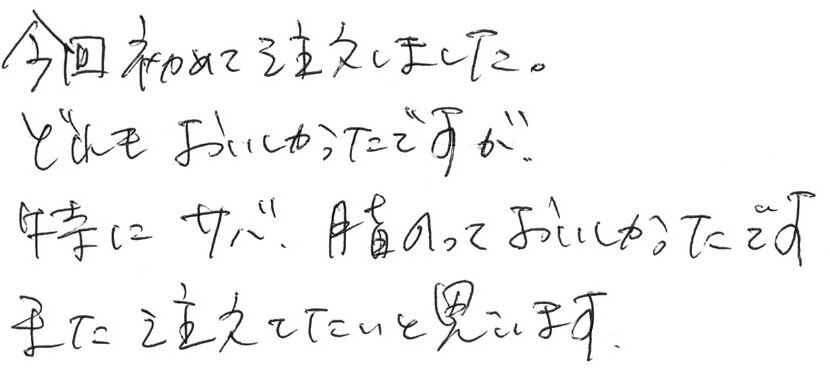 今回初めて注文しました。
どれもおいしかったですが、
特にサバ、脂のっておいしかったです
また注文てたいと思います.